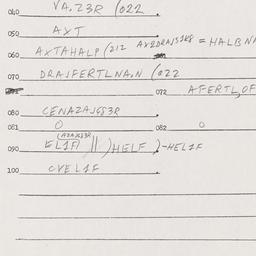 040 VA.Z3R (022
050 AXT
060 AXTAHALP (212 = HALBN
070 DRAIFERTLNA.N (022
072 AFERTL,OF
080 CENAZAJGS3R
081 0 082 0
090 EL1F) || )HELF )-HEL1F
100 CVEL1F